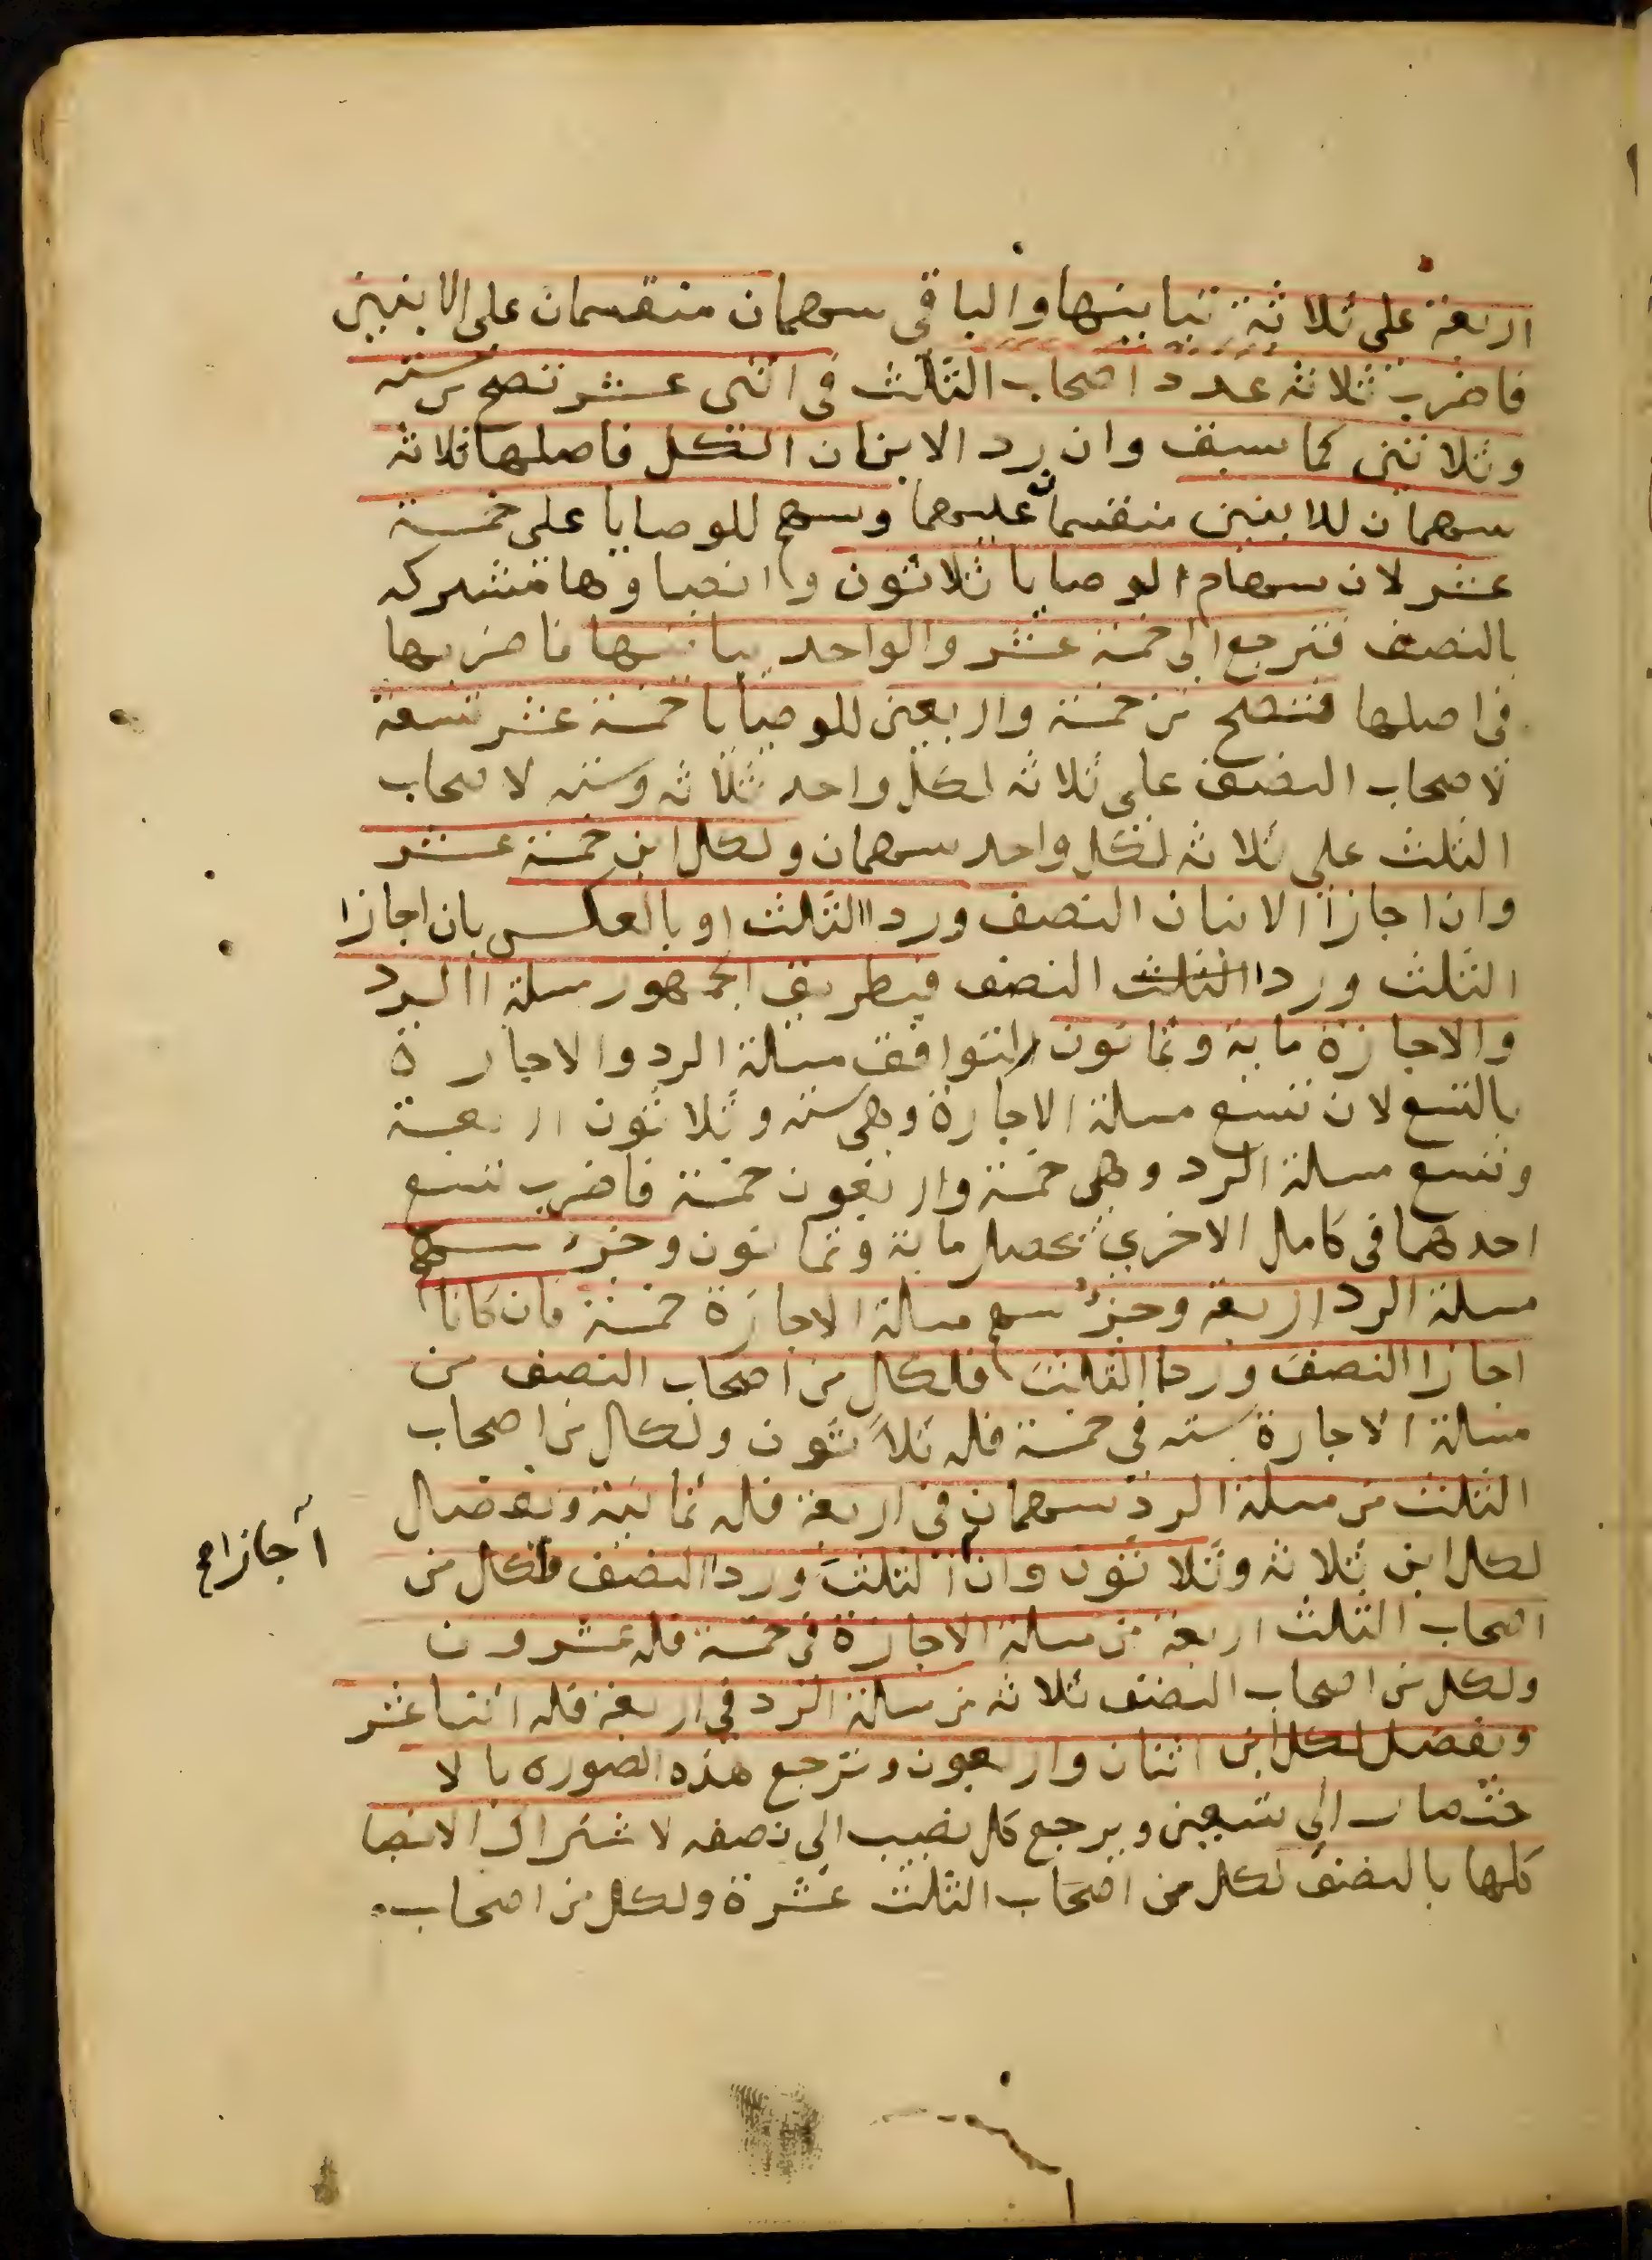 اربعة على ثلاثة تباينها والباقى سهمان منقسمان على الابنين
فاضرب ثلاثة عدد اصحاب الثلث فى اثنى عشر تصح من ستة
وثلاثين كما سبق وان رد الابنان الكل فاصلها ثلاثة
سهمان للابنين منقسمان عليهما وسهم للوصايا على خمسة
عشر لان سهام الوصايا ثلاثون وانصباوها مشتركه
بالنصف فترجع الى خمسة عشر والواحد يباينها فاضربها
فى اصلها فتصح من خمسة واربعين للوصايا خمسة عشر تسعة
لاصحاب النصف على ثلاثه لكل واحد ثلاثه وسته لاصحاب
الثلث على ثلاثه لكل واحد سهمان ولكل ابن خمسة عشر
وان اجازا الابنان النصف وردا الثلث او بالعكس بان اجازا
الثلث وردا الثلث النصف فبطريق الجمهور مسلة الرد
والاجازة ماية وثمانون لتوافق مسلة الرد والاجازة
بالتسع لان تسع مسلة الاجازة وهى ستة وثلاثون اربعة
وتسع مسلة الرد وهى خمسة واربعون خمسة فاضرب تسع
احدهما فى كامل الاخرى يحصل ماية وثمانون وجزء سهم
مسلة الرد اربعة وجزء سهم مسالة الاجازة خمسة فان كانا
اجازا النصف وردا الثلث فلكل من اصحاب النصف من
مسالة الاجازة سته فى خمسة فله ثلاثون ولكل من اصحاب
الثلث من مسلة الرد سهمان فى اربعة فله ثمانية ويفضل
لكل ابن ثلاثه وثلاثون وان الثلث وردا النصف فلكل من
اجازا صح
اصحاب الثلث اربعة من مسلة الاجازة فى خمسة فله عشرون
ولكل من اصحاب النصف ثلاثه من مسالة الرد فى اربعة فله اثنا عشر
ويفضل لكل ابن اثنان واربعون وترجع هذه الصوره بالا
ختصار الى تسعين ويرجع كل نصيب الى نصفه لاشتراك الانصبا
كلها بالنصف لكل من اصحاب الثلث عشرة ولكل من اصحاب